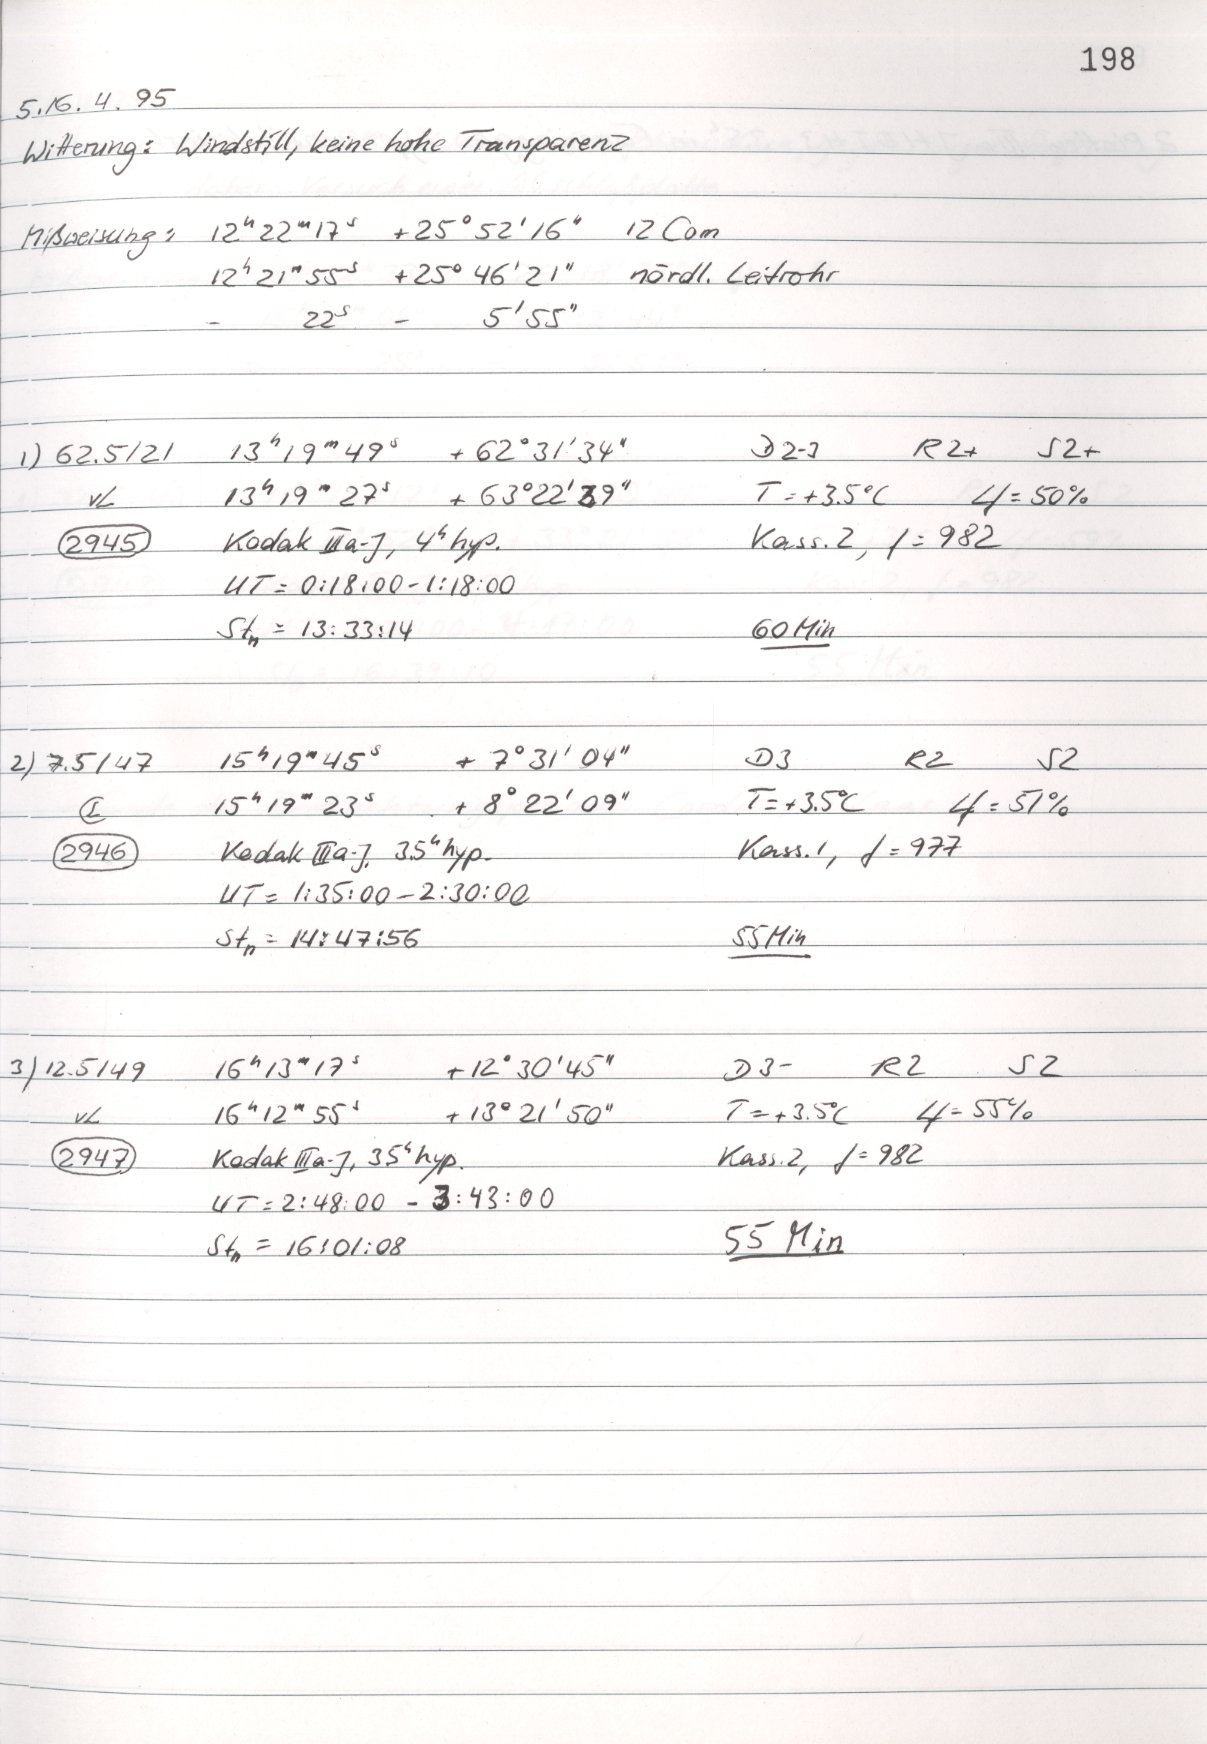 198
5./6. 4. 95
Witterung: Windstill, keine hohe Transparenz
Mißweisung: 12ʰ22ᵐ17ˢ +25°52'16" 12 Com
12ʰ21ᵐ55ˢ +25°46'21" nördl. Leitrohr
- 22ˢ - 5'55"
1) 62.5/21 13ʰ19ᵐ49ˢ +62°31'34" D2-3 R2+ S2+
vL 13ʰ19ᵐ27ˢ +63°22'39" T=+3.5°C =50%
2945 Kodak IIIa-J, 4ʰ hyp. Kass. 2, f=982
UT=0:18:00-1:18:00
Stₙ = 13:33:14 60 Min
2) 7.5/47 15ʰ19ᵐ45ˢ +7°31'04" D3 R2 S2
15ʰ19ᵐ23ˢ +8°22'09" T=+3.5°C =51%
2946 Kodak IIIa-J, 3.5ʰ hyp. Kass. 1, f=977
UT=1:35:00-2:30:00
Stₙ = 14:47:56 55 Min
3) 12.5/49 16ʰ13ᵐ17ˢ +12°30'45" D3- R2 S2
vL 16ʰ12ᵐ55ˢ +13°21'50" T=+3.5°C =55%
2947 Kodak IIIa-J, 3.5ʰ hyp. Kass. 2, f=982
UT=2:48:00 - 3:43:00
Stₙ = 16:01:08 55 Min